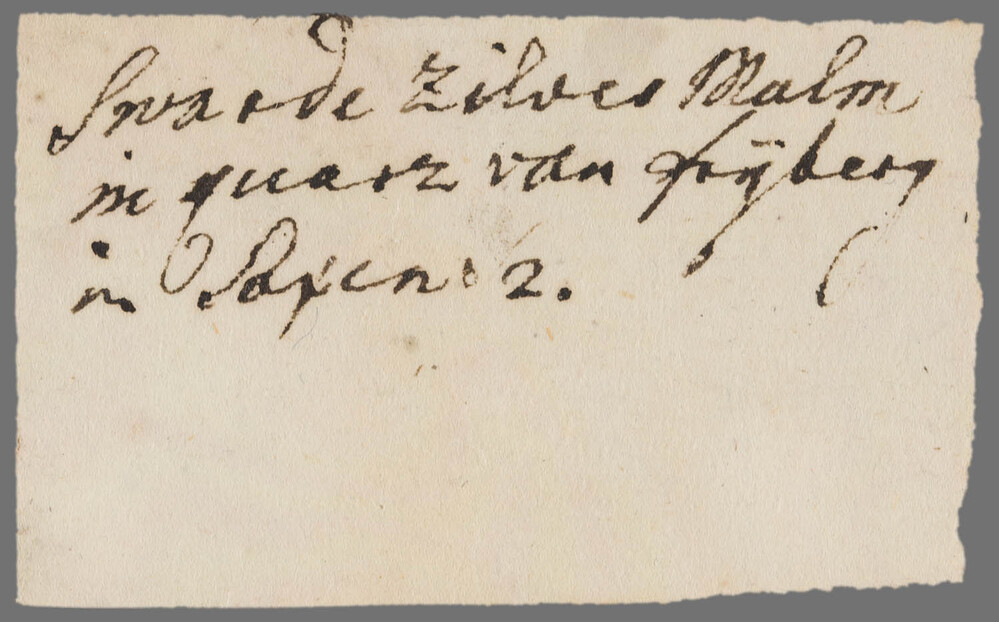 Swarde Zilver Malm
in quarz van frÿberg
in Saxen 2.